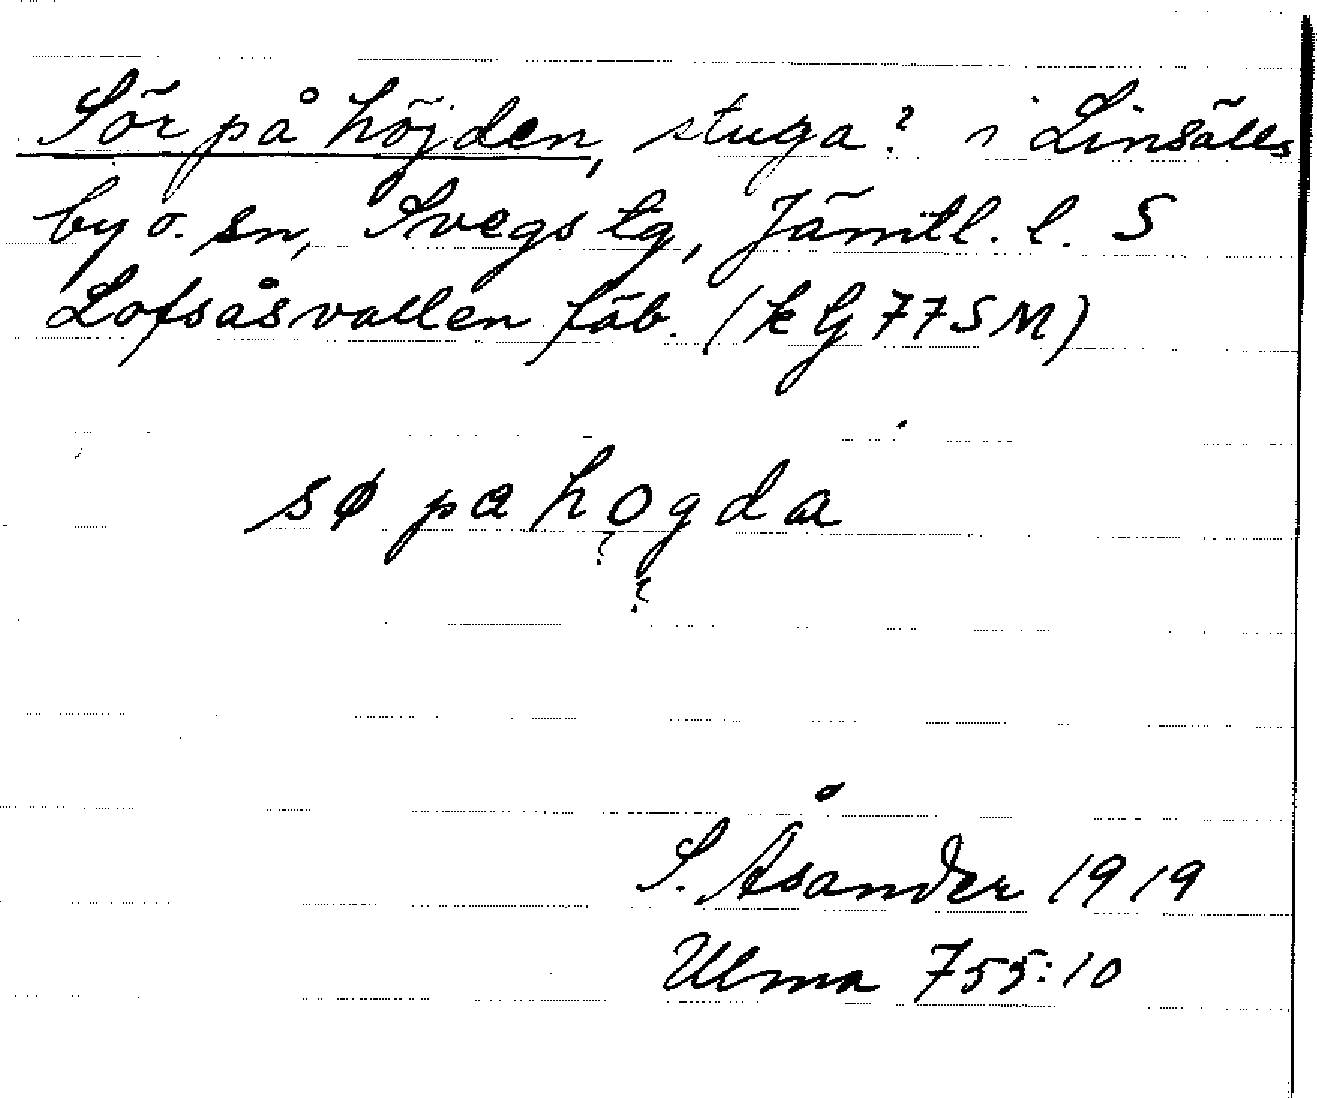 Sör på höjden, stuga? i Linsälls
by o. sn, Svegs tg, Jämtl. l. S
Lofsåsvallen fäb. (k G 77 S M)
sø pa hogda
S. Åsander 1919
Ulma 755:10